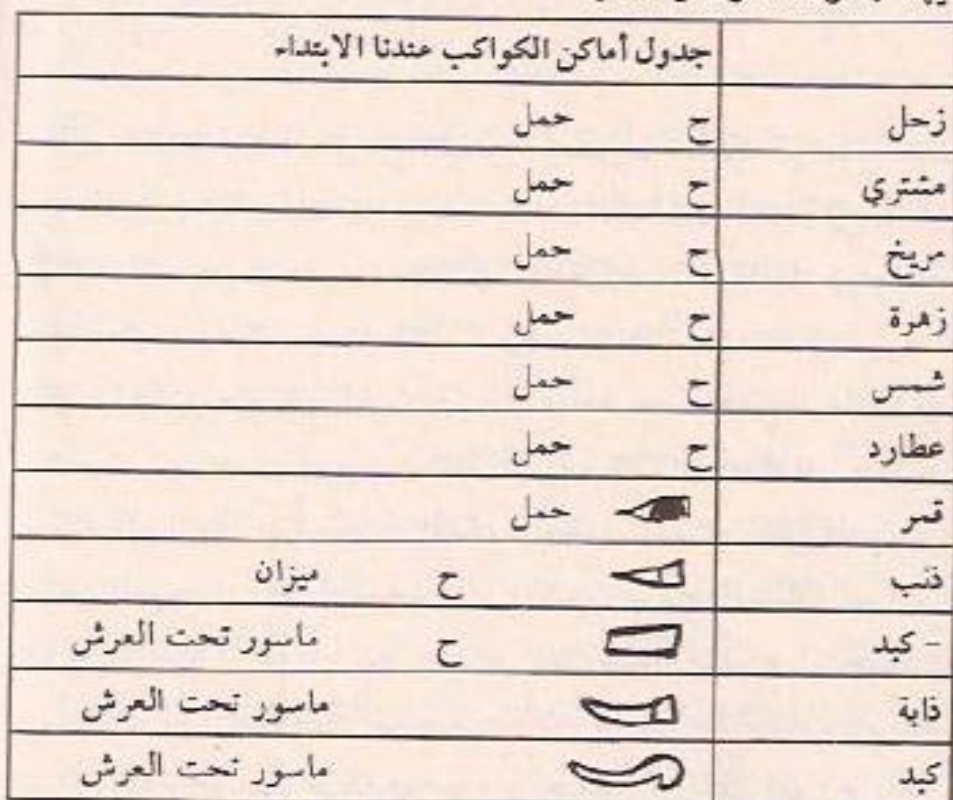 جدول أماكن الكواكب عندنا الابتداء
زحل ح حمل
مشتري ح حمل
مريخ ح حمل
زهرة ح حمل
شمس ح حمل
عطارد ح حمل
قمر حمل
ذنب ح ميزان
- كبد ح ماسور تحت العرش
ذابة ماسور تحت العرش
كبد ماسور تحت العرش